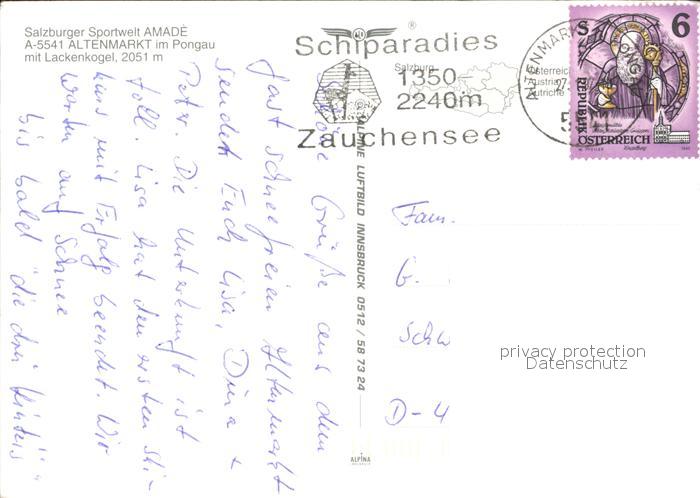 Salzburger Sportwelt AMADÈ
A-5541 ALTENMARKT im Pongau
mit Lackenkogel, 2051 m
Schiparadies
Salzburg
1350-
2240m
Zauchensee
ALTENMARKT
PONGAU
S 6
REPUBLIK
ÖSTERREICH
ALPINE LUFTBILD INNSBRUCK 0512 / 58 73 24
ALPINA
Schöne Grüße aus dem
fast schneefreien Altenmarkt
senden Euch Lisa, Dina +
Peter. Die Unterkunft ist
toll. Lisa hat den ersten Ski-
kurs mit Erfolg beendet. Wir
warten auf Schnee
bis bald "die drei
Fam.
G.
Schw
D-4
privacy protection
Datenschutz